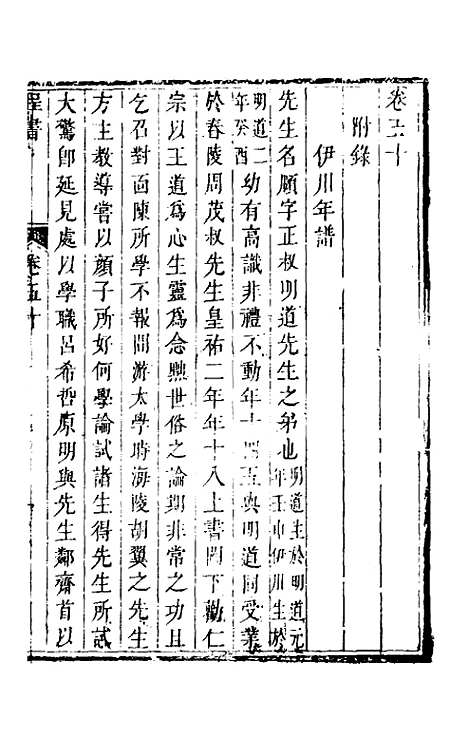 卷五十
附錄
伊川年譜
先生名頤字正叔明道先生之弟也明道生於明道元年壬申伊川生於
明道二年癸酉幼有高識非禮不動年十四五與明道同受業
於舂陵周茂叔先生皇祐二年年十八上書闕下勸仁
宗以王道為心生靈為念黜世俗之論期非常之功且
乞召對面陳所學不報間游太學時海陵胡翼之先生
方主教導嘗以顏子所好何學論試諸生得先生所試
大驚即延見處以學職呂希哲原明與先生鄰齋首以
程書
卷五十